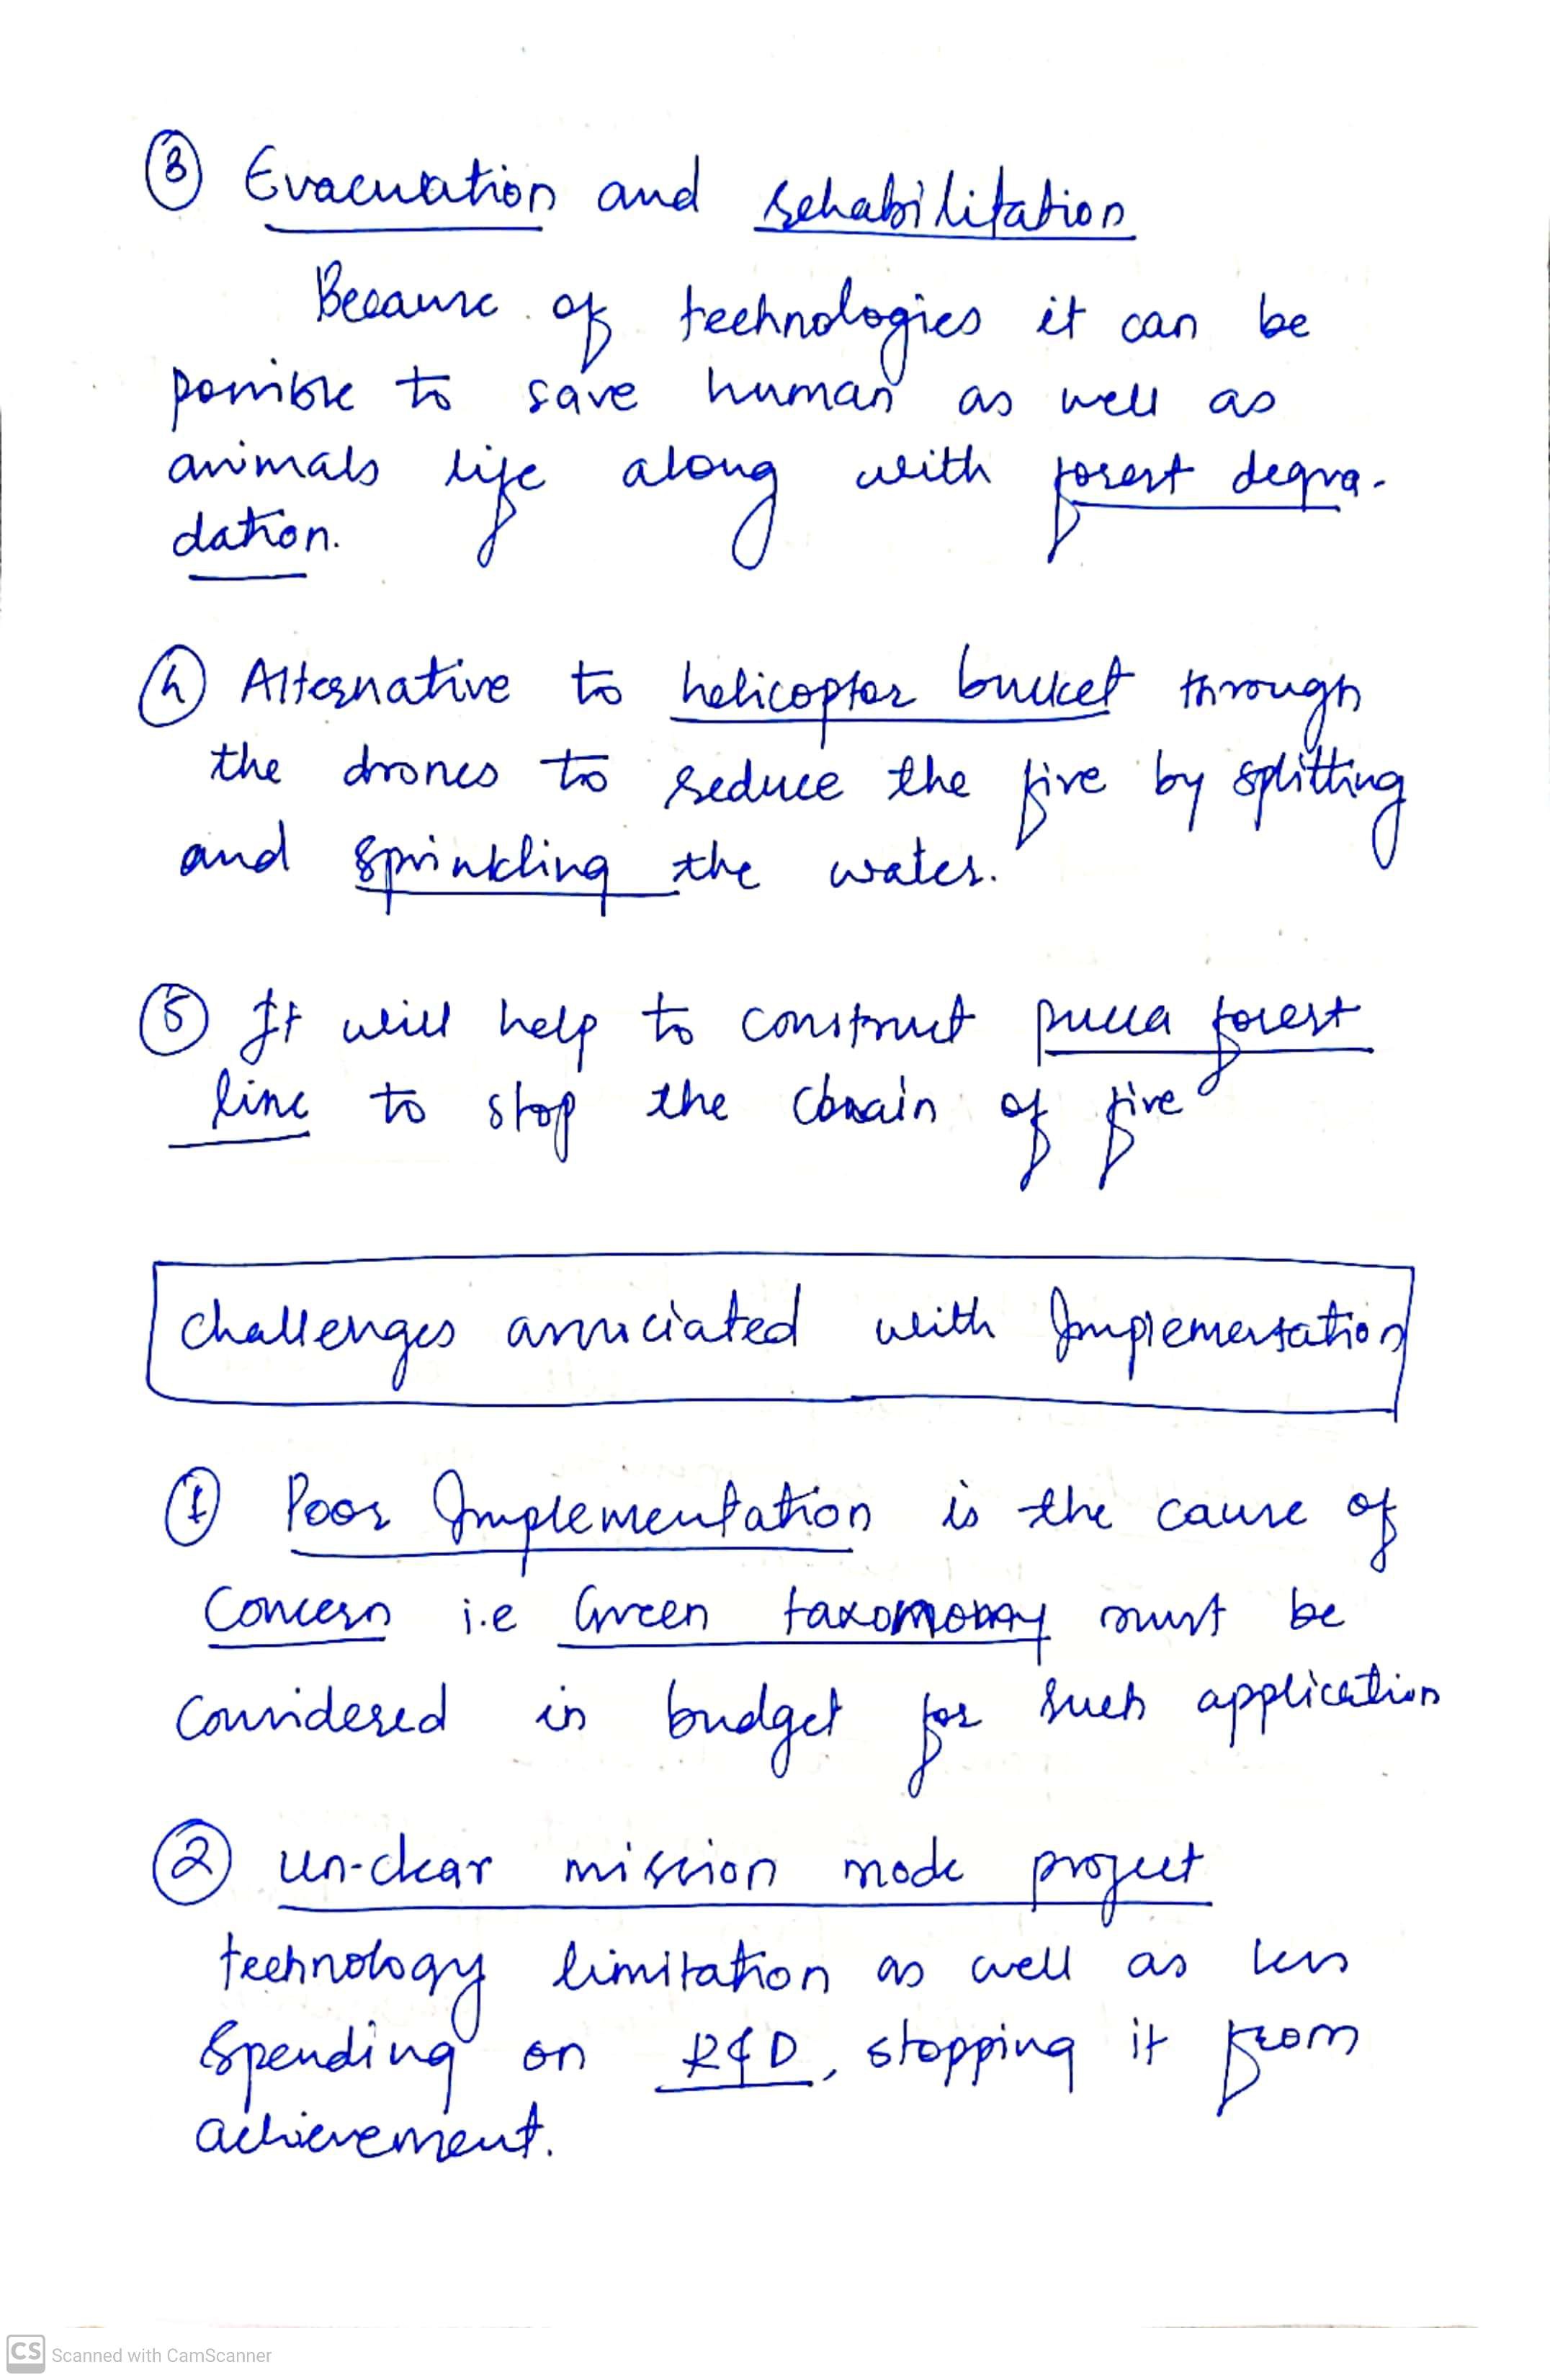 ③ Evacuation and rehabilitation
Because of technologies it can be
possible to save human as well as
animals life along with forest degra-
dation.
④ Alternative to helicopter bucket through
the drones to reduce the fire by splitting
and sprinkling the water.
⑤ It will help to construct pucca forest
line to stop the chain of fire
Challenges associated with Implementation
① Poor Implementation is the cause of
Concern i.e Green taxomomy must be
Considered in budget for such application
② un-clear mission mode project
technology limitation as well as less
Spending on R&D, stopping it from
achievement.
CS Scanned with CamScanner